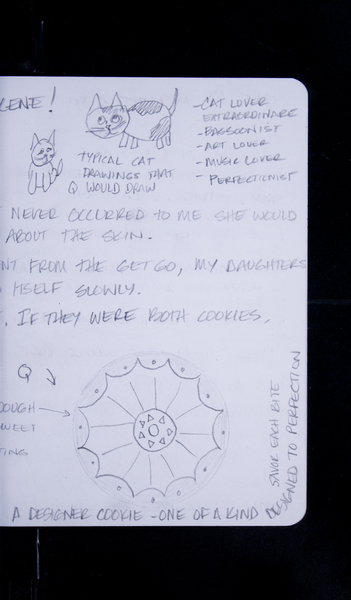 GENE!
-CAT LOVER
EXTRAORDINAIRE
-BASSOONIST
-ART LOVER
-MUSIC LOVER
- PERFECTIONIST
TYPICAL CAT
DRAWINGS THAT
Q WOULD DRAW
NEVER OCCURRED TO ME SHE WOULD
ABOUT THE SKIN.
NT FROM THE GET GO, MY DAUGHTERS
ITSELF SLOWLY.
. IF THEY WERE BOTH COOKIES,
Q
DOUGH
WEET
TING
SAVOR EACH BITE
DESIGNED TO PERFECTION
A DESIGNER COOKIE - ONE OF A KIND